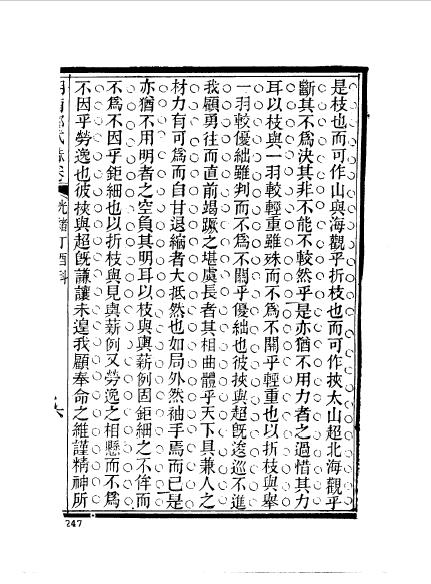 是枝也而可作山與海觀乎折枝也而可作挾太山超北海觀乎
斷其不為決其非不能不較然乎是亦猶不用力者之過惜其力
耳以枝與一羽較輕重雖殊而不為不關乎輕重也以折枝與舉
一羽較優絀雖判而不為不關乎優絀也彼挾與超旣逡巡不進
我顧勇往而直前竭蹶之堪虞長者其相曲體乎天下具兼人之
材力有可為而自甘退縮者大抵然也如局外然袖手焉而已是
亦猶不用明者之空負其明耳以枝與輿薪例固鉅細之不侔而
不為不因乎鉅細也以折枝與見輿薪例又勞逸之相懸而不為
不因乎勞逸也彼挾與超旣謙讓未遑我顧奉命之維謹精神所
光緒丁酉科
247